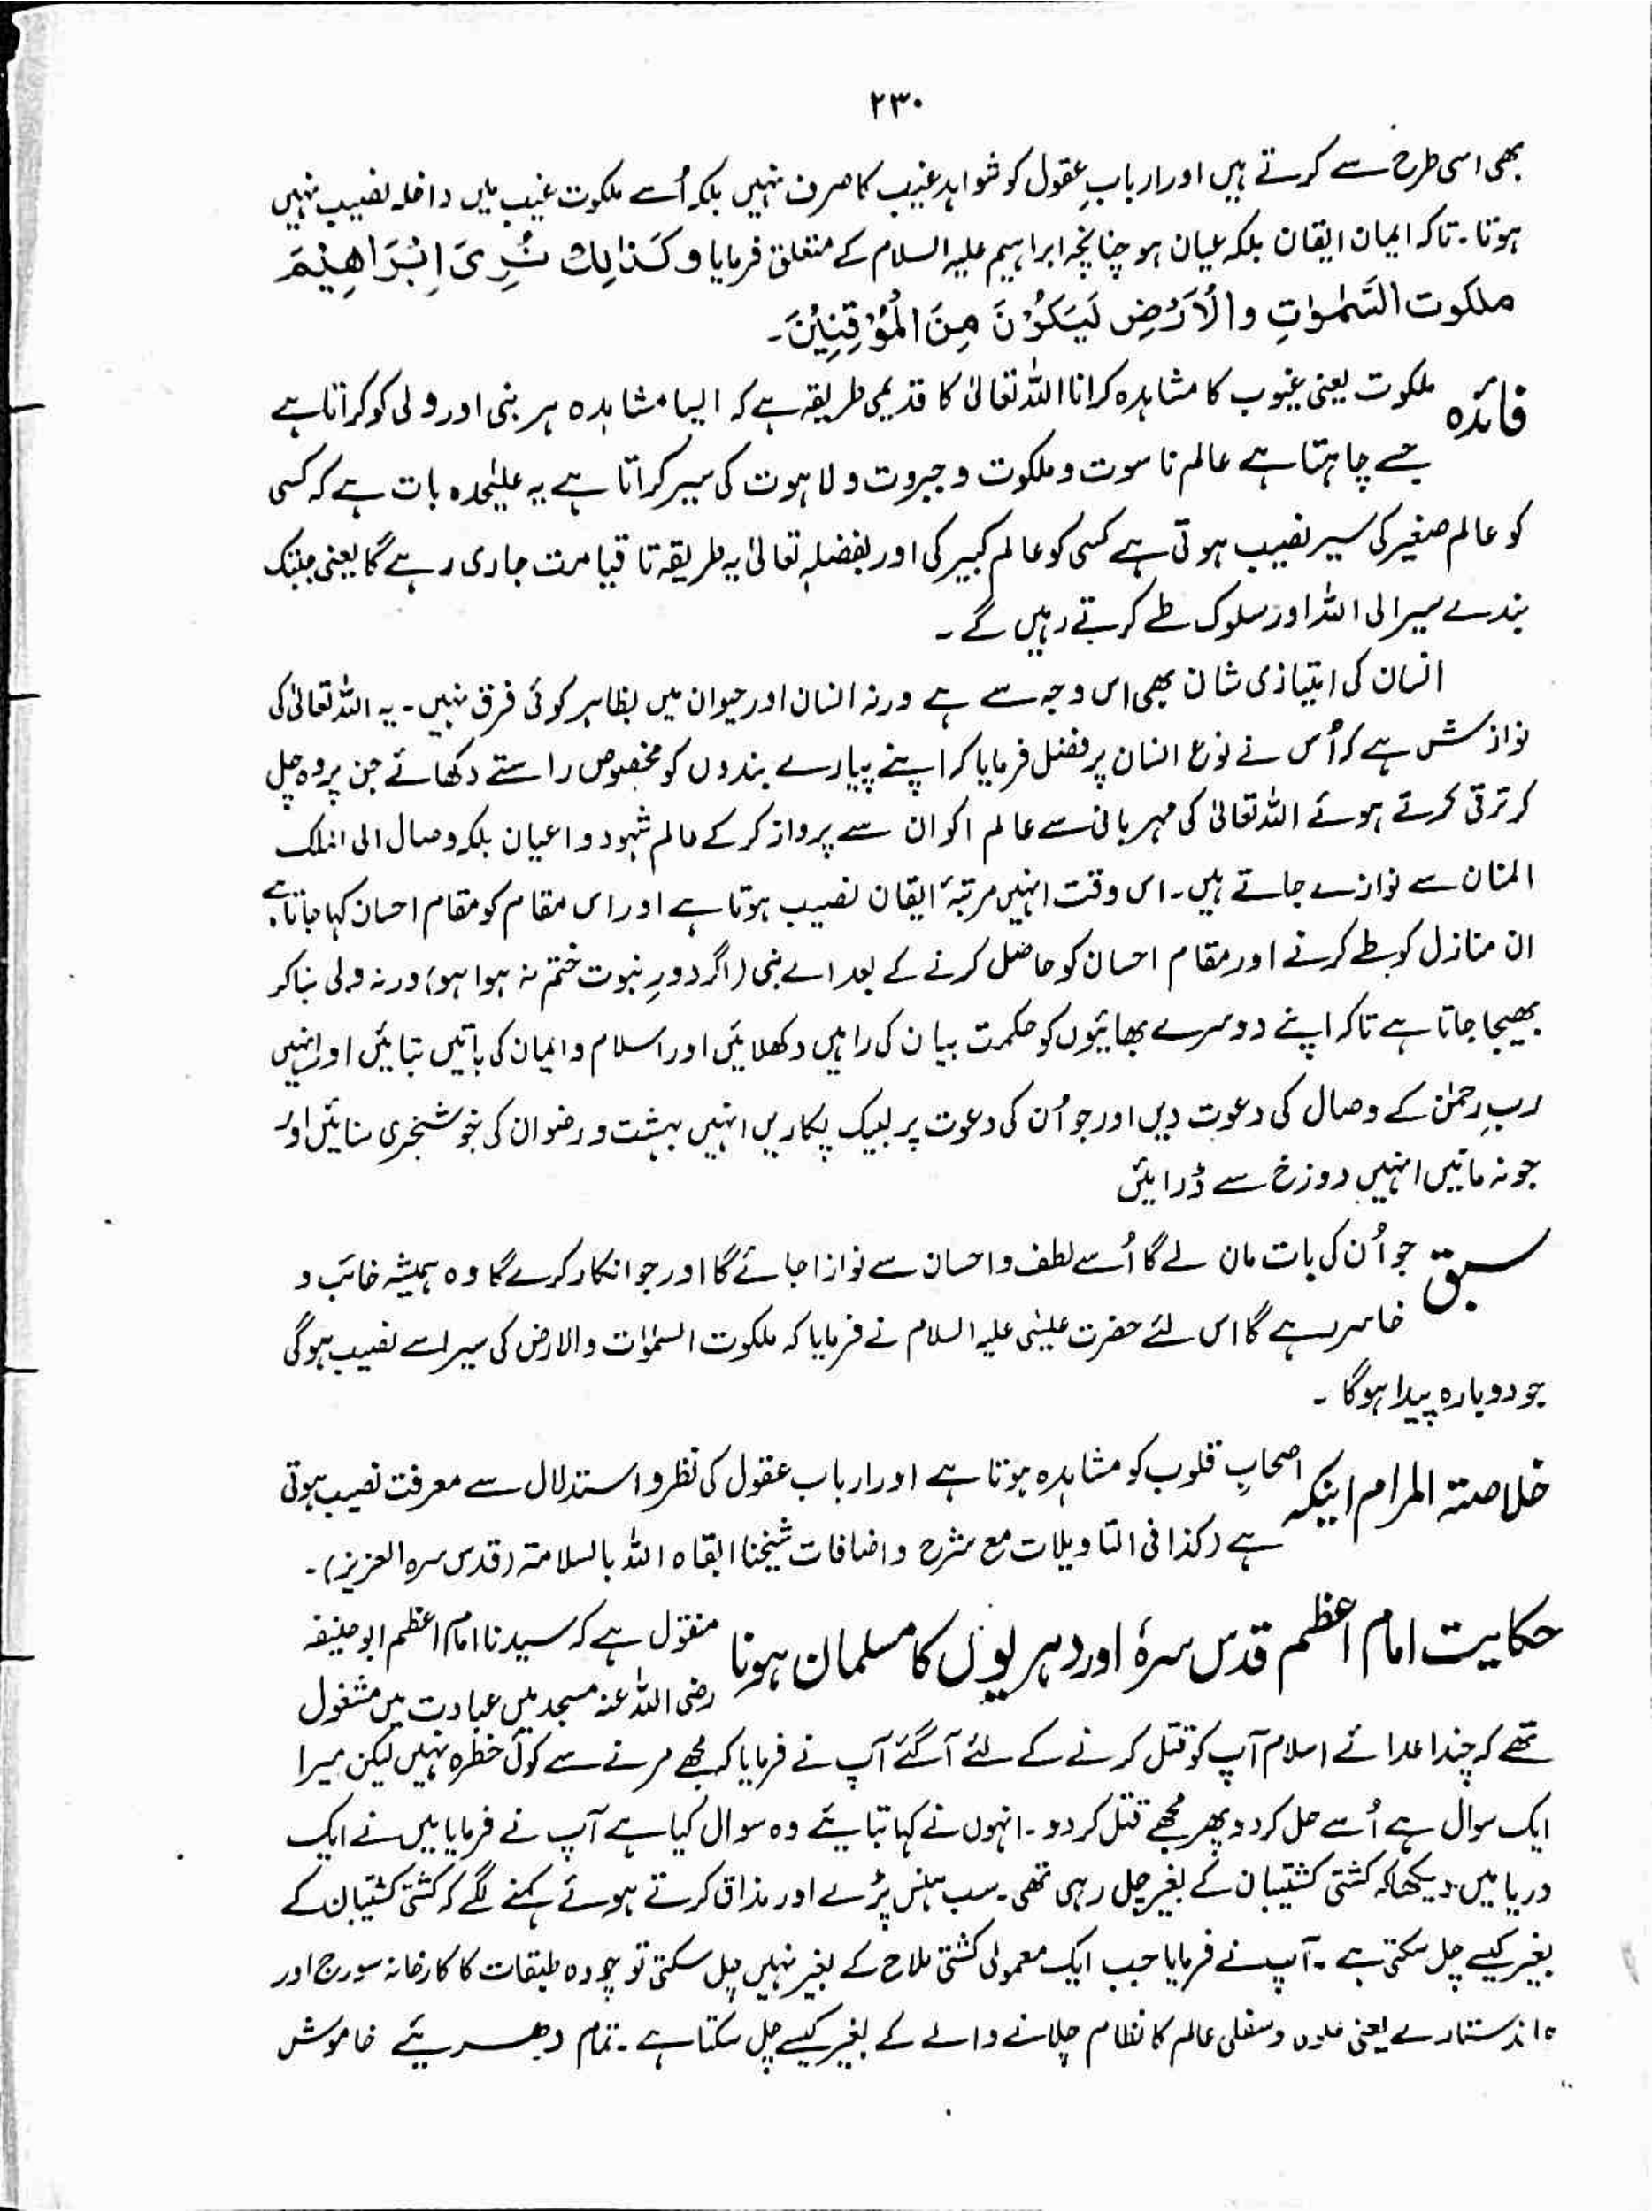 ۲۳۰
بھی اسی طرح سے کرتے ہیں اور اربابِ عقول کو شواہدِ غیب کا صرف نہیں بلکہ اُسے ملکوت غیب میں داخلہ نصیب نہیں
ہوتا۔ تاکہ ایمان ایقان بلکہ عیان ہو چنانچہ ابراہیم علیہ السلام کے متعلق فرمایا وَکَذٰلِكَ نُرِیَ اِبْرَاهِیْمَ
ملکوت السَّمٰوٰتِ والْاَرْضِ لَیَکُوْنَ مِنَ الْمُوْقِنِیْنَ۔
فائدہ ملکوت یعنی غیوب کا مشاہدہ کرانا اللہ تعالیٰ کا قدیمی طریقہ ہے کہ ایسا مشاہدہ ہر نبی اور ولی کو کراتا ہے
جسے چاہتا ہے عالم ناسوت و ملکوت و جبروت و لاہوت کی سیر کراتا ہے یہ علیٰحدہ بات ہے کہ کسی
کو عالم صغیر کی سیر نصیب ہوتی ہے کسی کو عالم کبیر کی اور بفضلہٖ تعالیٰ یہ طریقہ تا قیامت جاری رہے گا یعنی جبتک
بندے سیر الی اللہ اور سلوک طے کرتے رہیں گے۔
انسان کی امتیازی شان بھی اس وجہ سے ہے ورنہ انسان اور حیوان میں بظاہر کوئی فرق نہیں۔ یہ اللہ تعالیٰ کی
نوازش ہے کہ اُس نے نوع انسان پر فضل فرمایا کہ اپنے پیارے بندوں کو مخصوص راستے دکھائے جن پر وہ چل
کر ترقی کرتے ہوئے اللہ تعالیٰ کی مہربانی سے عالم اکوان سے پرواز کر کے عالم شہود و اعیان بلکہ وصال الی الملک
المنان سے نوازے جاتے ہیں۔ اس وقت انہیں مرتبۂ ایقان نصیب ہوتا ہے اور اس مقام کو مقام احسان کہا جاتا ہے۔
ان منازل کو طے کرنے اور مقام احسان کو حاصل کرنے کے بعد اسے نبی (اگر دورِ نبوت ختم نہ ہوا ہو) ورنہ ولی بنا کر
بھیجا جاتا ہے تاکہ اپنے دوسرے بھائیوں کو حکمت بیان کی راہیں دکھلائیں اور اسلام و ایمان کی باتیں بتائیں اور انہیں
ربِ رحمٰن کے وصال کی دعوت دیں اور جو اُن کی دعوت پر لبیک پکاریں انہیں بہشت و رضوان کی خوشخبری سنائیں اور
جو نہ مانیں انہیں دوزخ سے ڈرائیں
سبق جو اُن کی بات مان لے گا اُسے لطف و احسان سے نوازا جائے گا اور جو انکار کرے گا وہ ہمیشہ خائب و
خاسر رہے گا اس لئے حضرت عیسٰی علیہ السلام نے فرمایا کہ ملکوت السمٰوات والارض کی سیر اسے نصیب ہوگی
جو دوبارہ پیدا ہوگا۔
خلاصتہ المرام اینکہ اصحابِ قلوب کو مشاہدہ ہوتا ہے اور ارباب عقول کی نظر و استدلال سے معرفت نصیب ہوتی
ہے (کذا فی التاویلات مع شرح و اضافات شیخنا ابقاہ اللہ بالسلامتہ (قدس سرہ العزیز)۔
حکایت امام اعظم قدس سرہٗ اور دہریوں کا مسلمان ہونا منقول ہے کہ سیدنا امام اعظم ابو حنیفہ
رضی اللہ عنہ مسجد میں عبادت میں مشغول
تھے کہ چند اعدائے اسلام آپ کو قتل کرنے کے لئے آ گئے آپ نے فرمایا کہ مجھے مرنے سے کوئی خطرہ نہیں لیکن میرا
ایک سوال ہے اُسے حل کر دو پھر مجھے قتل کر دو۔ انہوں نے کہا بتایئے وہ سوال کیا ہے آپ نے فرمایا میں نے ایک
دریا میں دیکھا کہ کشتی کشتیبان کے بغیر چل رہی تھی۔ سب ہنس پڑے اور مذاق کرتے ہوئے کہنے لگے کہ کشتی کشتیبان کے
بغیر کیسے چل سکتی ہے۔ آپ نے فرمایا جب ایک معمولی کشتی ملاح کے بغیر نہیں چل سکتی تو چودہ طبقات کا کارخانہ سورج اور
چاند ستارے یعنی علوی و سفلی عالم کا نظام چلانے والے کے بغیر کیسے چل سکتا ہے۔ تمام دھریئے خاموش